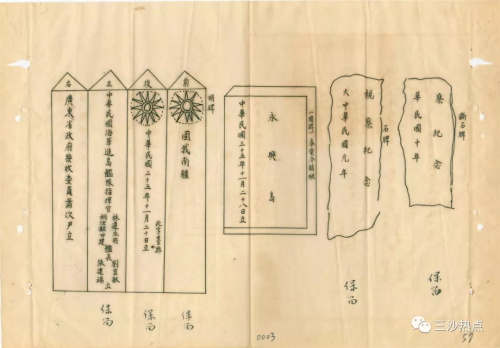 斷石碑
察紀念
華民國十年
保留
石碑
視察紀念
大中華民國元年
保留
永興島
中華民國三十五年十一月二十八日立
碑
前
固我南疆
保留
後
中華民國三十五年十一月二十日立
保留
左
中華民國海軍進島艦隊指揮官
艦長
立
保留
右
廣東省政府接收委員蕭次尹立
0003
57
三沙热点